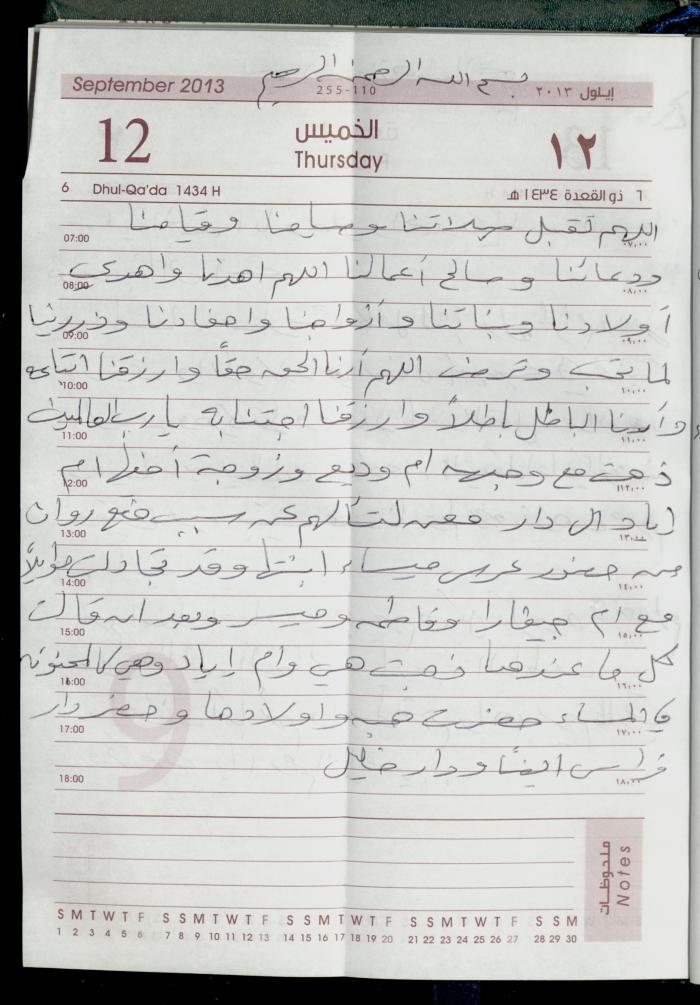 بسم الله الرحمن الرحيم
September 2013 255-110 إيلول ٢٠١٣
12 الخميس ١٢
Thursday
6 Dhul-Qa'da 1434 H ٦ ذو القعدة ١٤٣٤ هـ
اللهم تقبل صلاتنا وصيامنا وقيامنا
07:00 ٠٧,٠٠
ودعائنا وصالح أعمالنا اللهم اهدنا واهدى
08:00 ٠٨,٠٠
أولادنا وبناتنا وأزواجنا واحفادنا وذريتنا
09:00 ٠٩,٠٠
لما تحب وترضى اللهم أرنا الحق حقاً وارزقنا اتباعه
10:00 ١٠,٠٠
وأرنا الباطل باطلاً وارزقنا اجتنابه يا رب العالمين
11:00 ١١,٠٠
ذهبت مع وجيهه ام وديع وزوجة أخيها ام
12:00 ١٢,٠٠
إياد ال دار معن لتسألهم عن سبب منع روان
13:00 ١٣,٠٠
من حضور عرس ميساء ابنتها وقد تجادلت طويلاً
14:00 ١٤,٠٠
مع ام جيفارا وفاطمه وميسر وبعد ان قالت
15:00 ١٥,٠٠
كل ما عندها ذهبت هي وام إياد وهي كالمجنونه
16:00 ١٦,٠٠
في المساء حضرت هبه واولادها وحضر دار
17:00 ١٧,٠٠
فراس ايضاً ودار خليل
18:00 ١٨,٠٠
ملحوظات Notes
S M T W T F S S M T W T F S S M T W T F S S M T W T F S S M
1 2 3 4 5 6 7 8 9 10 11 12 13 14 15 16 17 18 19 20 21 22 23 24 25 26 27 28 29 30